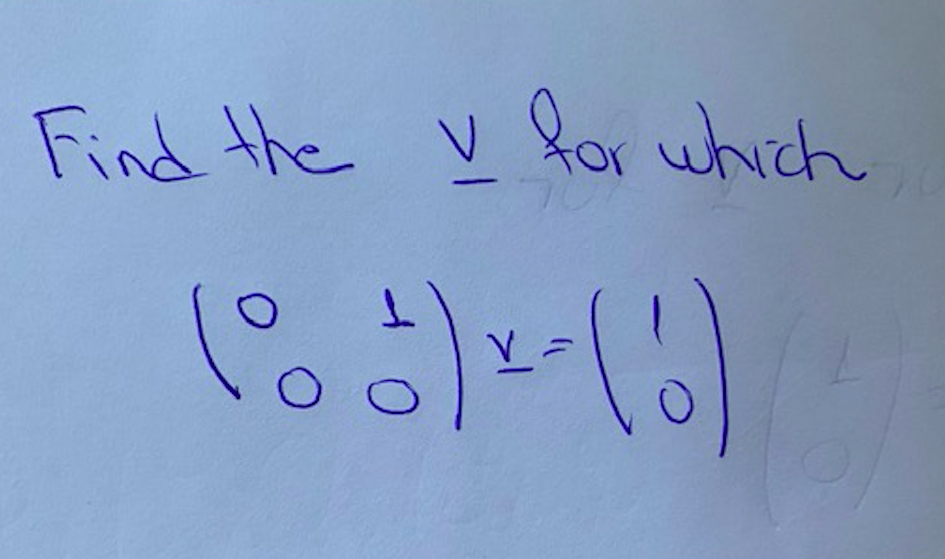 Find the v for which
(0 1
0 0) v = (1
0)